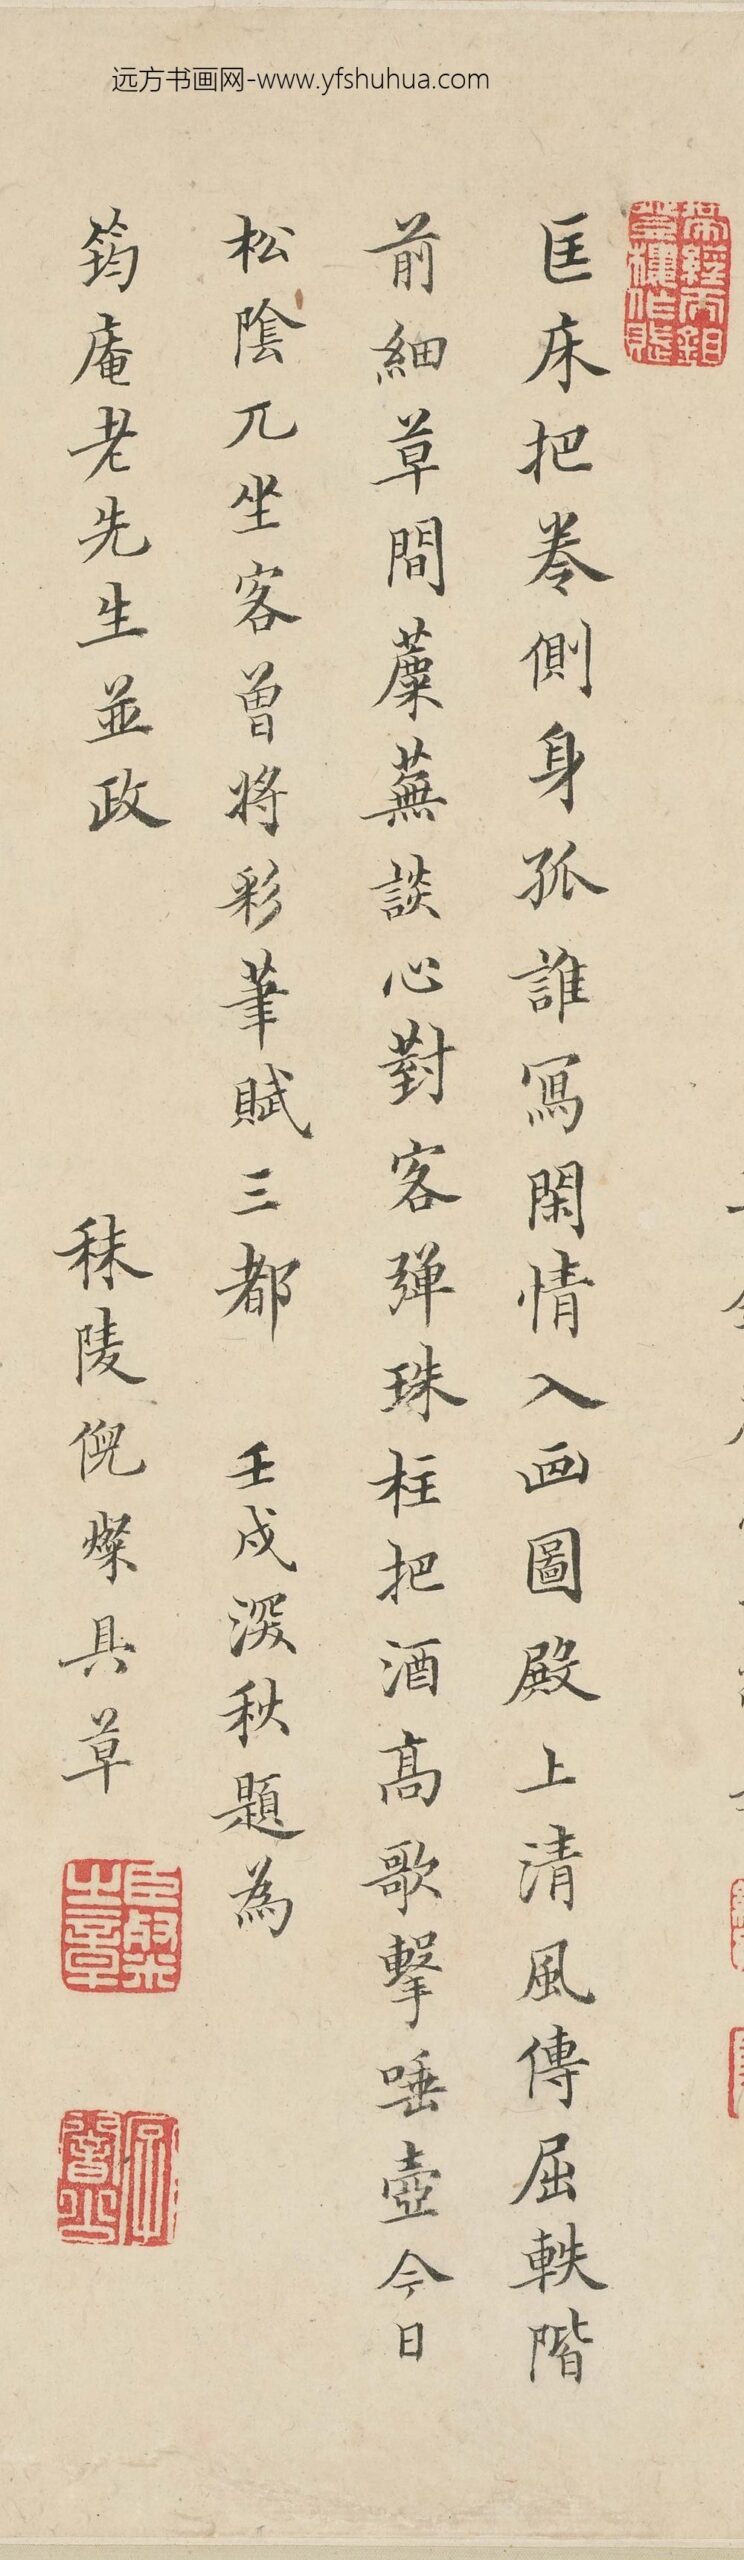 远方书画网-www.yfshuhua.com
匡床把卷側身孤誰寫閑情入画圖殿上清風傳屈軼階
前細草間蘼蕪談心對客彈珠柱把酒高歌擊唾壺今日
松陰兀坐客曾將彩筆賦三都 壬戌深秋題為
筠庵老先生並政 秣陵倪燦具草
臣燦之章